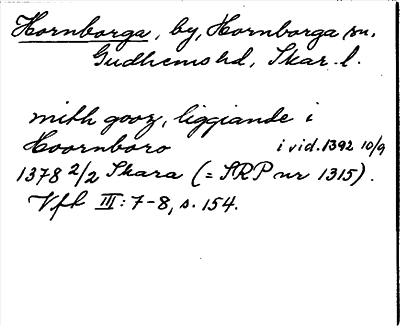 Hornborga, by, Hornborga sn.
Gudhems hd, Skar. l.
mith gooz, liggiande i
Hoornboro i vid. 1392 10/9
1378 2/2 Skara (= SRP nr 1315).
Vfl III: 7-8, s. 154.